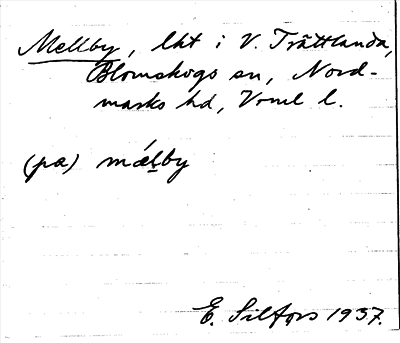 Mellby, lht i V. Trättlanda,
Blomskogs sn, Nord-
marks hd, Vrml l.
(pa) mǽl̠by
E. Silfors 1937.